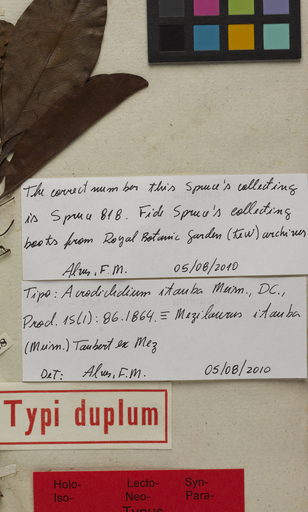 The correct number this Spruce's collecting
is Spruce 818. Fide Spruce's collecting
books from Royal Botanic Garden (Kew) archives
Alves, F.M. 05/08/2010
Tipo: Acrodiclidium itauba Meisn., DC.,
Prod. 15(1): 86. 1864. ≡ Mezilaurus itauba
(Meisn.) Taubert ex Mez
Det: Alves, F.M. 05/08/2010
Typi duplum
Holo- Lecto- Syn-
Iso- Neo- Para-
Typus